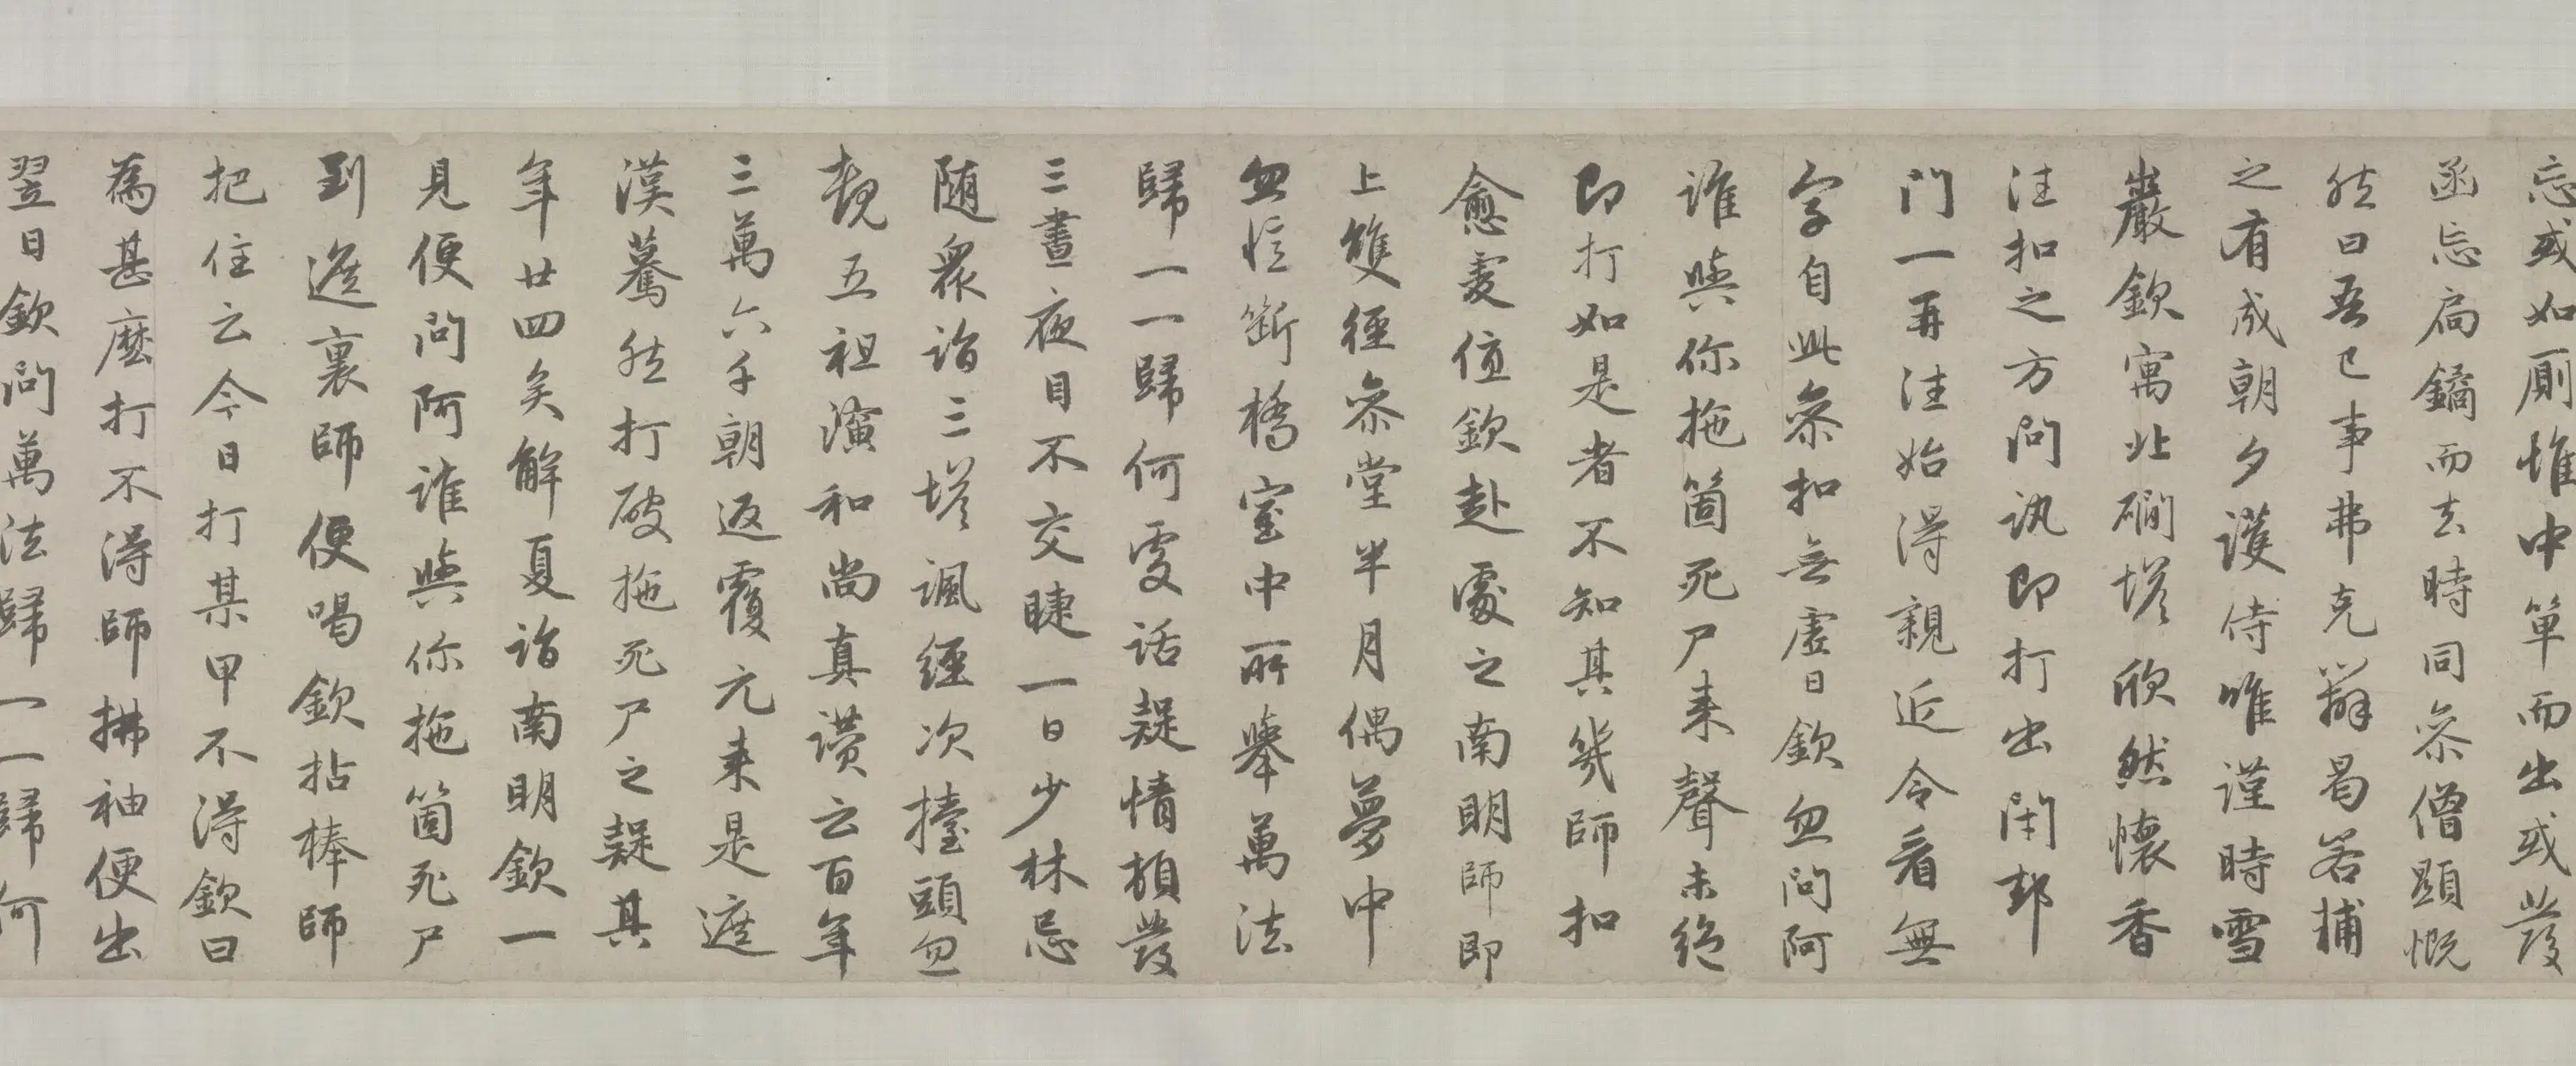 忘或如廁惟中單而出或發
函忘扃鐍而去時同叅僧顯慨
然曰吾己事弗克辦曷若捕
之有成朝夕護侍唯謹時雪
巖欽寓北磵塔欣然懷香
往扣之方問訊即打出閉却
門一再往始得親近令看無
字自此叅扣無虛日欽忽問阿
誰與你拖箇死尸来聲未絕
即打如是者不知其幾師扣
愈虔值欽赴處之南明師即
上雙徑叅堂半月偶夢中
忽憶斷橋室中所舉萬法
歸一一歸何處話疑情頓發
三晝夜目不交睫一日少林忌
随衆詣三塔諷經次擡頭忽
覩五祖演和尚真讚云百年
三萬六千朝返覆元来是遮
漢驀然打破拖死尸之疑其
年廿四矣解夏詣南明欽一
見便問阿誰與你拖箇死尸
到遮裏師便喝欽拈棒師
把住云今日打某甲不得欽曰
為甚麼打不得師拂袖便出
翌日欽問萬法歸一一歸何